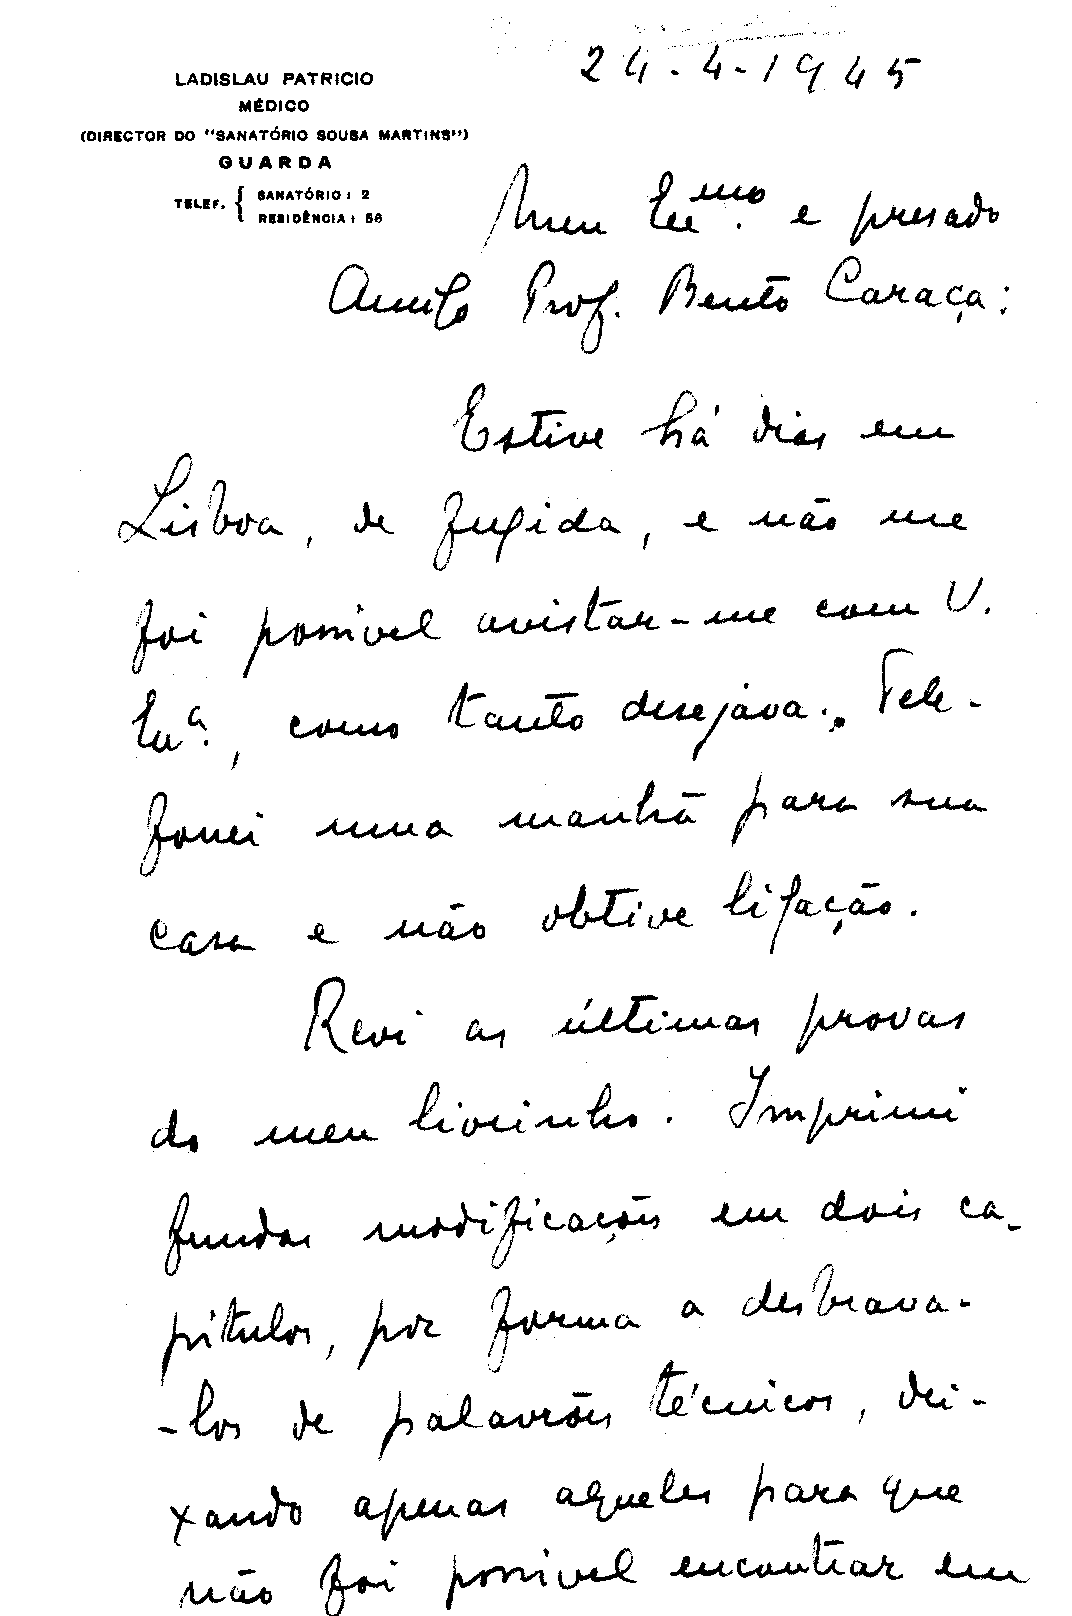 24-4-1945
LADISLAU PATRICIO
MÉDICO
(DIRECTOR DO "SANATÓRIO SOUSA MARTINS")
GUARDA
TELEF. { SANATÓRIO: 2
RESIDÊNCIA: 56
Meu Exmo. e presado
Amigo Prof. Bento Caraça:
Estive há dias em
Lisboa, de fugida, e não me
foi possível avistar-me com V.
Exª., como tanto desejava. Tele-
fonei uma manhã para sua
casa e não obtive ligação.
Revi as últimas provas
do meu livrinho. Imprimi
fundas modificações em dois ca-
pítulos, por forma a desbrava-
-los de palavrões técnicos, dei-
xando apenas aqueles para que
não foi possível encontrar em